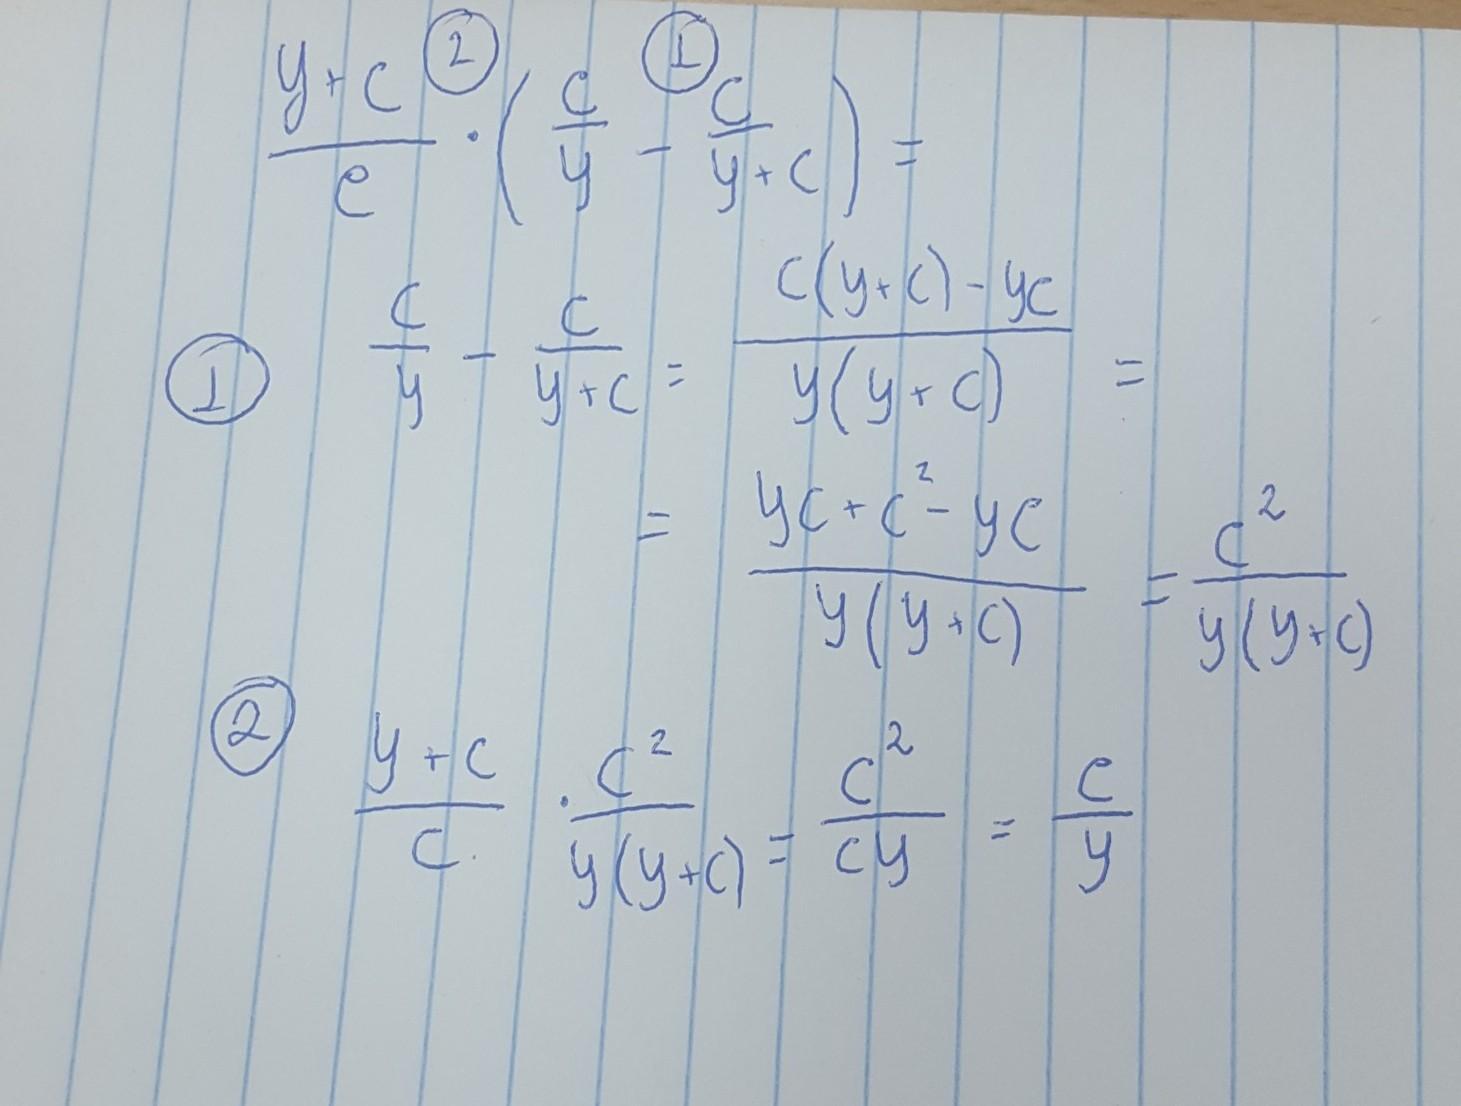 ② ①
(y+c)/c · (c/y − c/(y+c)) =
① c/y − c/(y+c) = (c(y+c) − yc)/(y(y+c)) =
= (yc + c² − yc)/(y(y+c)) = c²/(y(y+c))
② (y+c)/c · c²/(y(y+c)) = c²/(cy) = c/y